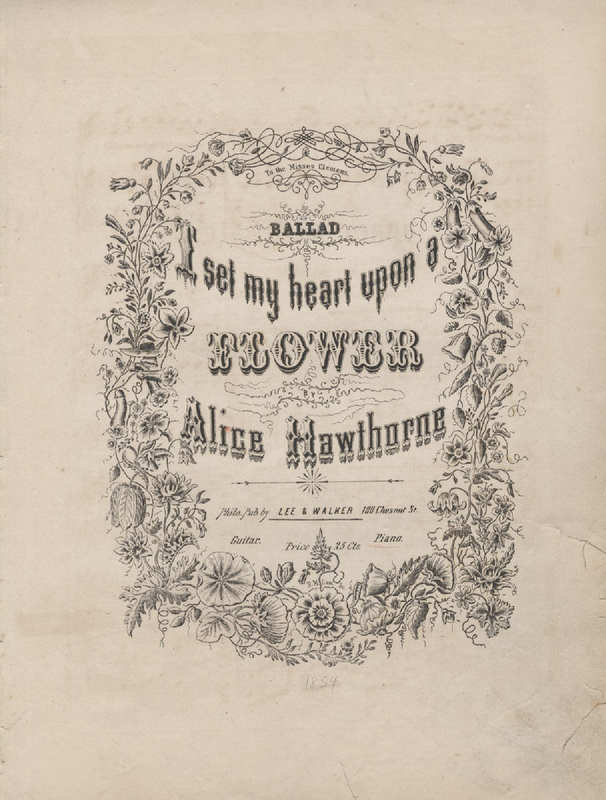 To the Misses Clemens.
BALLAD
I set my heart upon a
FLOWER
BY
Alice Hawthorne
Phila. Pub. by LEE & WALKER 188 Chesnut St.
Guitar. Price 25 Cts. Piano.
1854